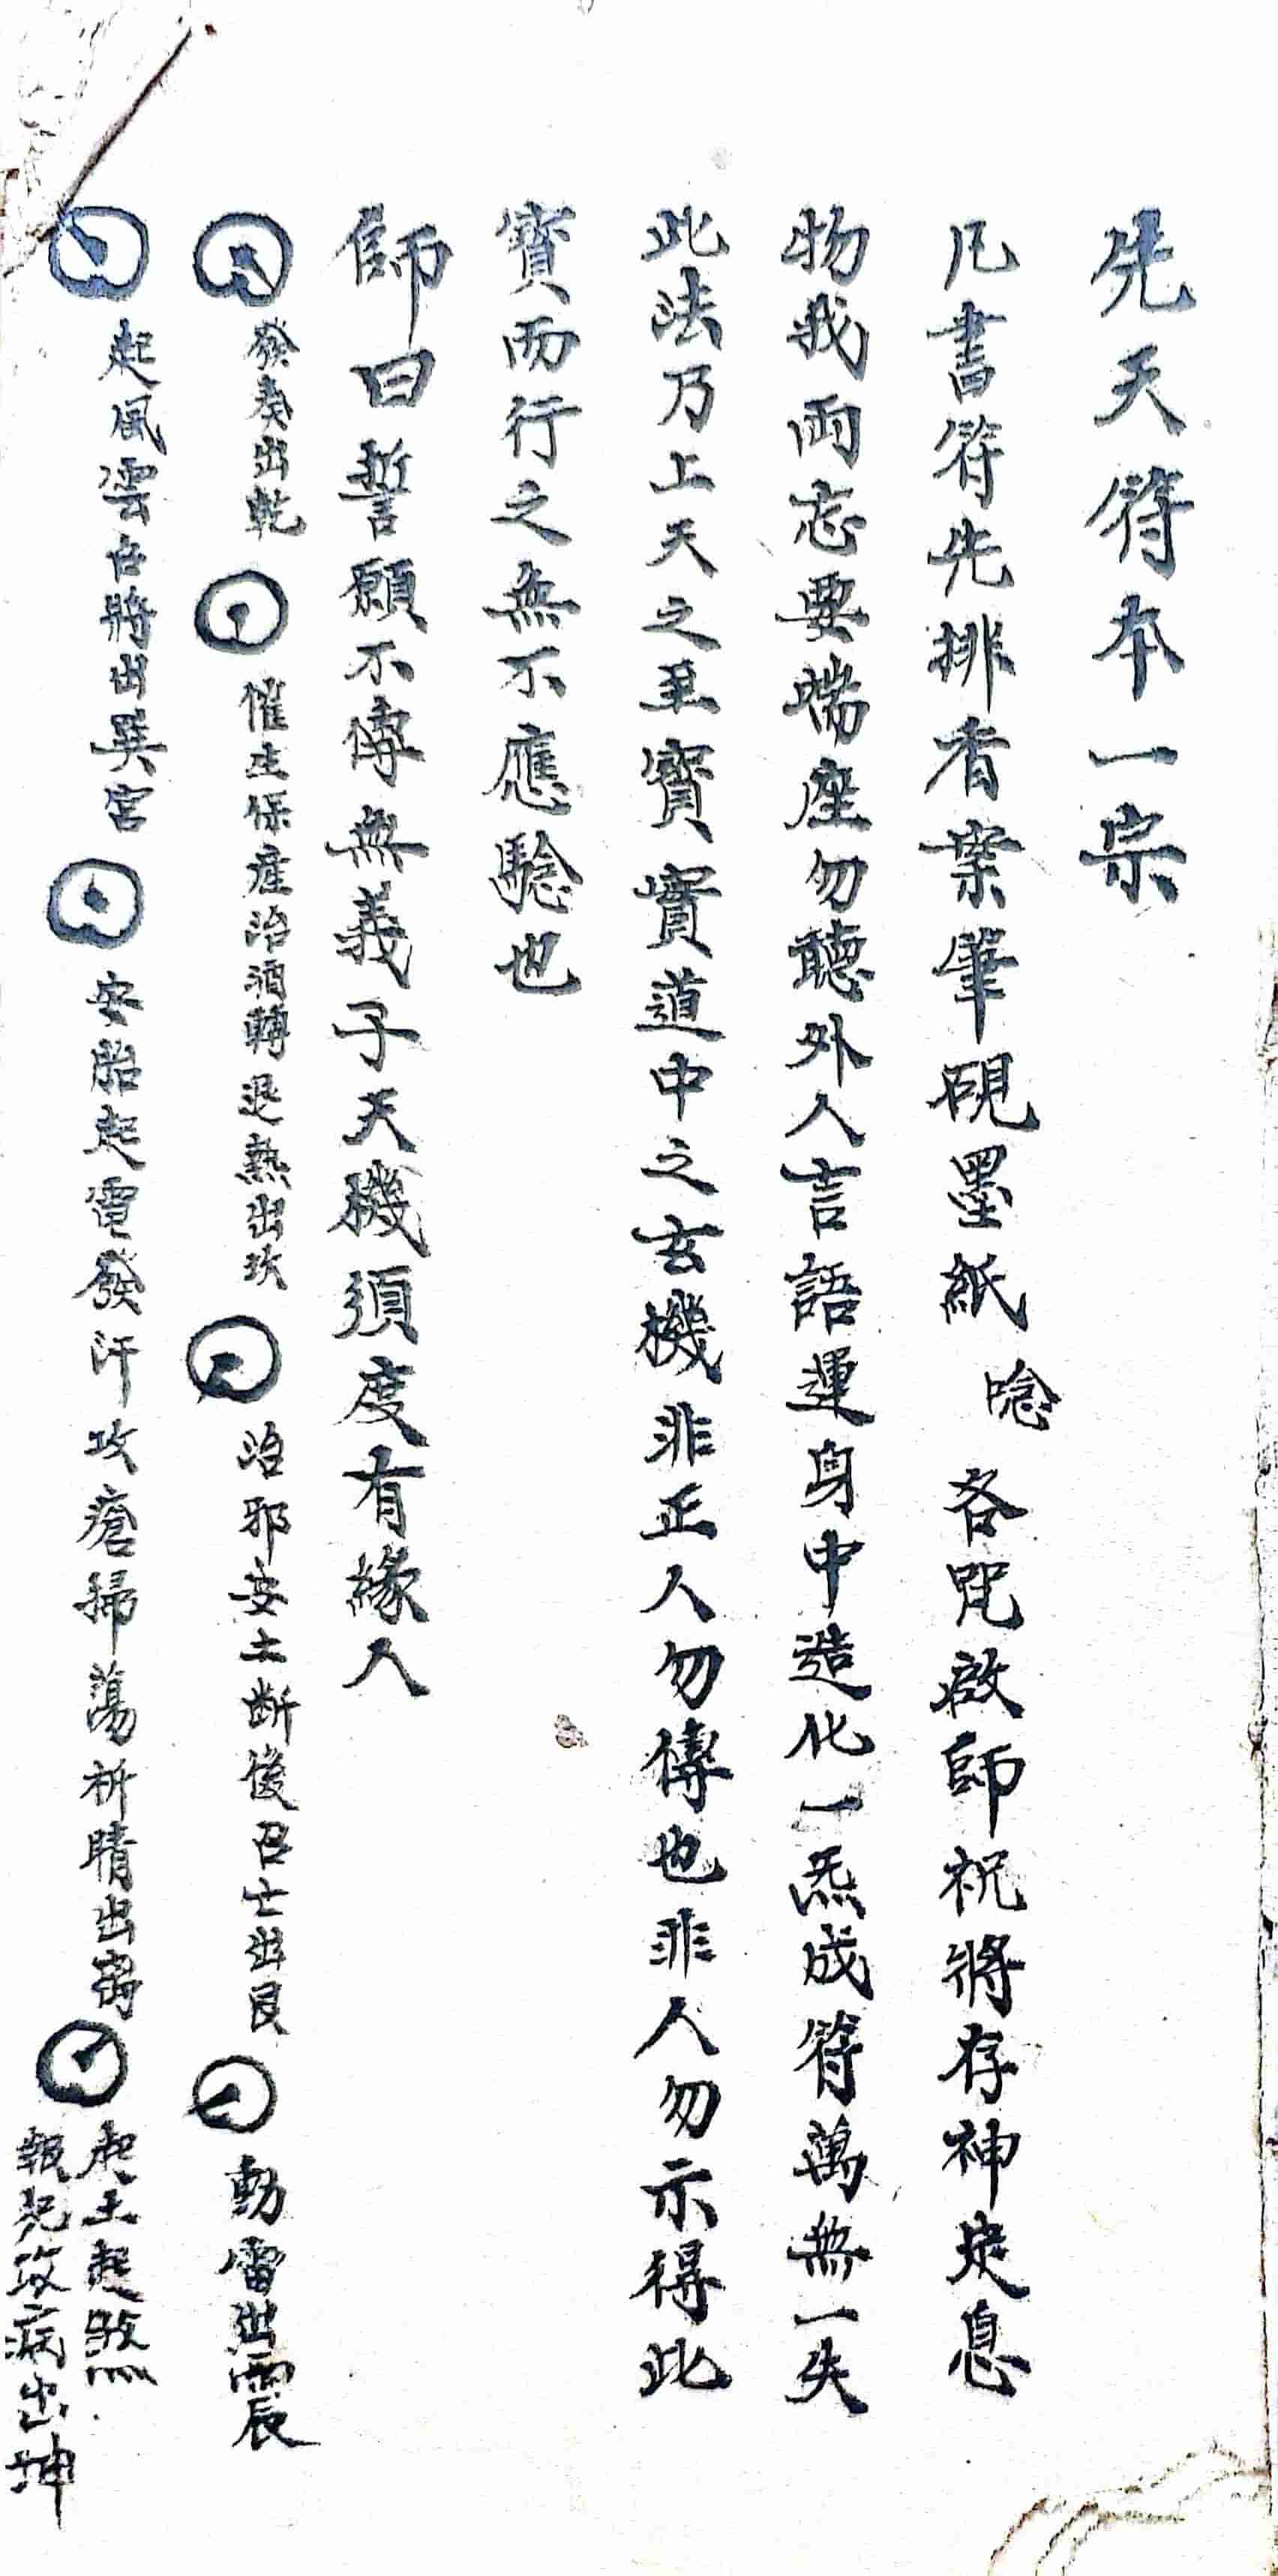 先天符本一宗
凡書符先排香案筆硯墨紙唸各咒啟師祝將存神定息
物我両忘要端座勿聽外人言語運身中造化一炁成符萬無一失
此法乃上天之至寶實道中之玄機非正人勿傳也非人勿示得此
寶而行之無不應驗也
師曰誓願不傳無義子天機須度有緣人
發奏出乾 催生保產治酒轉退熱出坎 治邪安土断後召亡出艮 動雷出震
起風雲召將出巽宮 安胎起電發汗攻瘡掃蕩祈晴出离 起土起煞
報犯攻病出坤